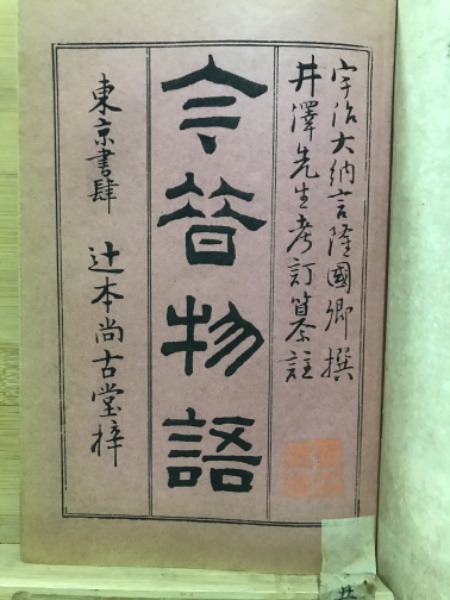 宇治大納言隆國卿撰
井澤先生考訂纂註
今昔物語
東京書肆 辻本尚古堂梓